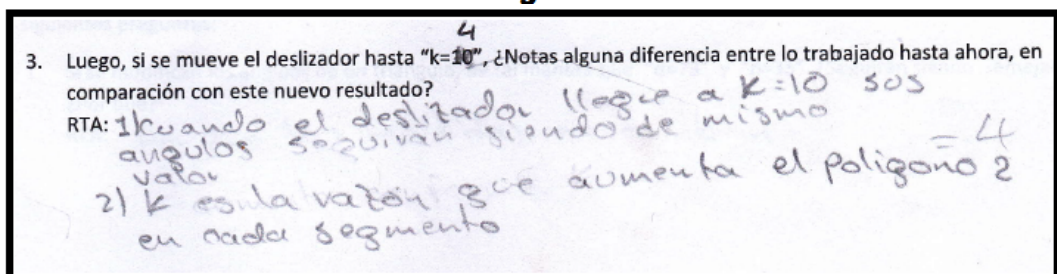 4
3. Luego, si se mueve el deslizador hasta "k=10", ¿Notas alguna diferencia entre lo trabajado hasta ahora, en
comparación con este nuevo resultado?
RTA: 1) cuando el deslizador llegue a k=10 sos
angulos seguiran siendo de mismo
valor = 4
2) k es la razon que aumenta el poligono 2
en cada segmento